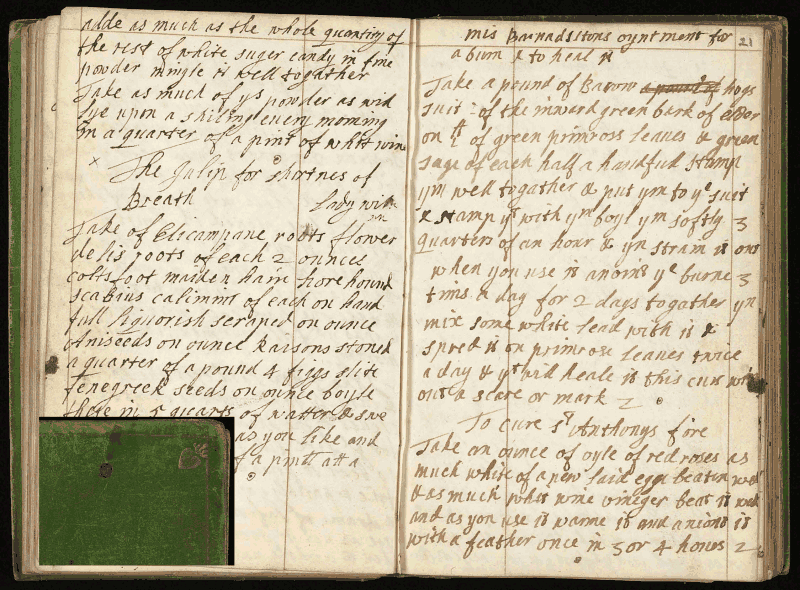 adde as much as the whole quantity of
the rest of white suger candy in fine
powder mingle it well togather
Take as much of ys powder as will
lye upon a shiling every morning
in a quarter of a pint of whit wine
The Julip for shortnes of
Breath Lady
Take of Elicampane roots flower
delis roots of each 2 ounces
coltsfoot maiden hair horehound
scabius calimint of each on hand
full liquorish scraped on ounce
Aniseeds on ounce Raisons stoned
a quarter of a pound 4 figgs slite
fenegreek seeds on ounce boyle
these in 5 quarts of watter & swe
as you like and
of a pintt att a
21
mis Barnadstons oyntment for
a burn & to heal it
Take a pound of Barow a pound of hogs
suit of the inward green bark of elder
on of green primross leaves & green
sage of each half a handfull stamp
ym well togather & put ym to ye suit
& stamp yt with ym boyl ym softly 3
quarters of an hour & yn strain it out
when you use it anoint ye burne 3
tims a day for 2 days togather yn
mix some white lead with it &
spred it on primrose leaves twice
a day & yt will heale it this cure with
out a scare or mark
To cure st Anthonys fire
Take an ounce of oyle of red roses as
much white of a new laid egg beaten well
& as much whit wine vineger beat it well
and as you use it warme it and anoint it
with a feather once in 3 or 4 hores